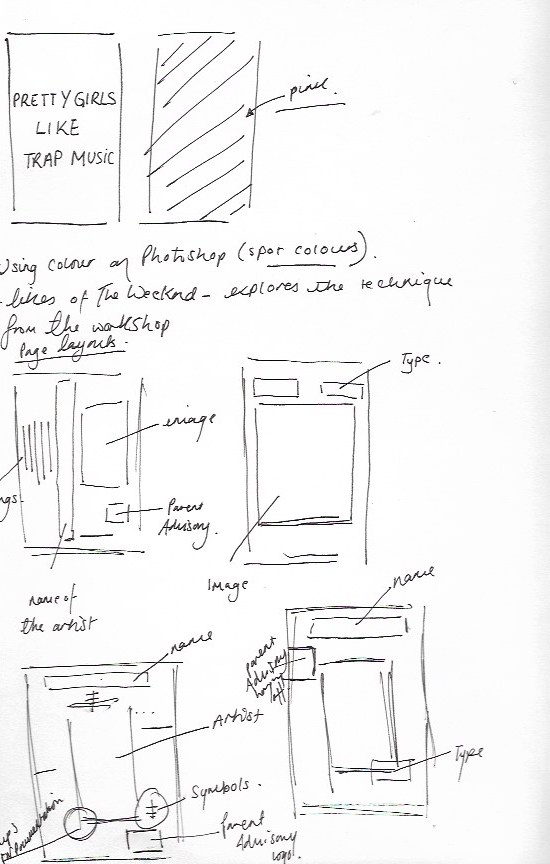 PRETTY GIRLS
LIKE
TRAP MUSIC
pink.
Using colour on Photoshop (spot colours).
- likes of The Weeknd - explores the technique
from the workshop
Page layouts.
Type.
image
Parent
Advisory.
ngs.
name of
the artist
Image
name
name
Parent
Advisory
hanging
off
Artist
Type
Symbols.
Parent
Advisory
logo.